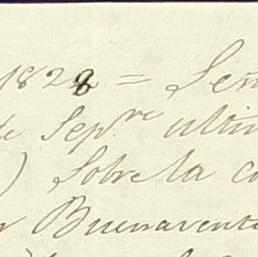 1828 = Señ
de Sep.re ultim
) Sobre la co
Buenaventu